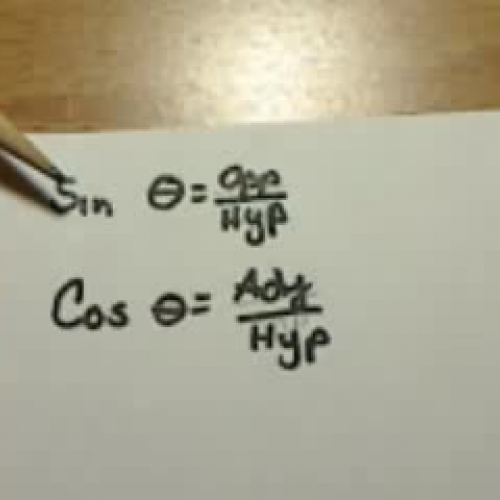 Sin θ = Opp/Hyp
Cos θ = Ady/Hyp